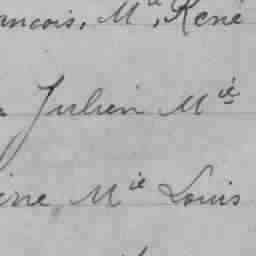 ancois, Mie, René
Julien Mie
ine, Mie Louis